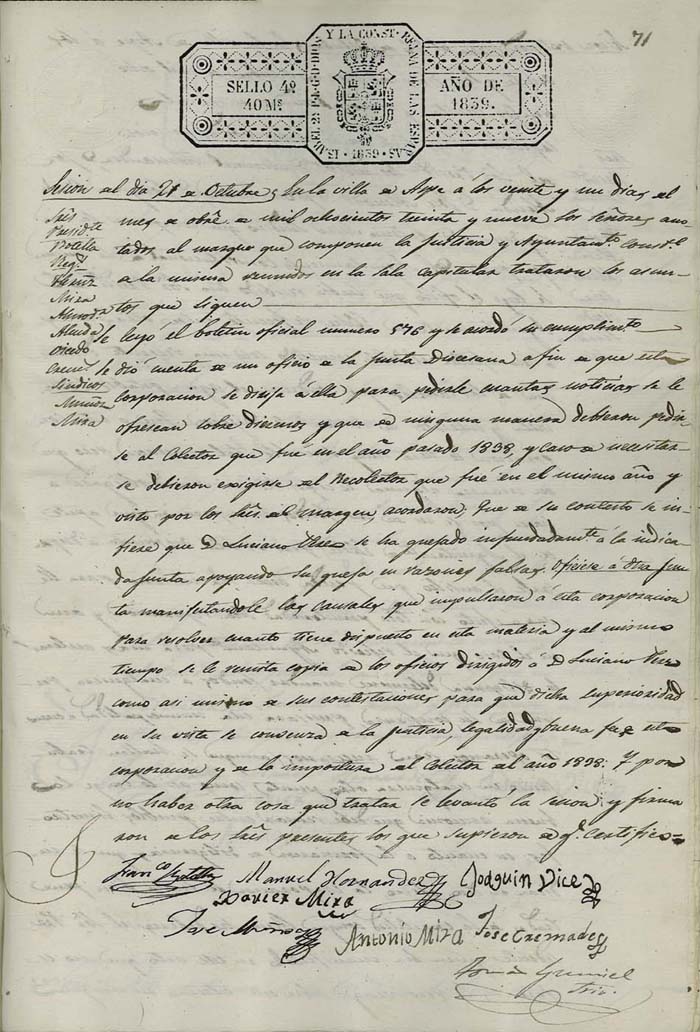 71
ISABEL 2ª P. L. G. D. DIOS Y LA CONST. REINA DE LAS ESPAÑAS
1839
SELLO 4º
40 Mˢ
AÑO DE
1839.
Sesion del dia 21 de Octubre
En la villa de Aspe á los veinte y un dias del
mes de obre. de mil ochocientos treinta y nueve los Señores ano-
tados al margen que componen la Justicia y Ayuntamto. Constl.
de la misma reunidos en la sala capitular trataron los asun-
tos que siguen
Sres.
Presidte
Botella
Regs.
Hernz
Mira
Almodr.
Alcude
Vicedo
Crems.
Sindicos
Muñoz
Mira
Se leyó el boletin oficial numero 576 y se acordó su cumplimto
Se dió cuenta de un oficio de la Junta Diocesana a fin de que esta
corporacion se dirija á ella para pedirle cuantas noticias se le
ofrescan sobre diezmos y que de ninguna manera debieron pedir-
se al Colector que fue en el año pasado 1838, y caso de necesitar-
se debieron exigirse del Recolector que fué en el mismo año y
visto por los Sres. del margen, acordaron: Que de su contesto se in-
fiere que D. Luciano se ha quejado infundadamte. á la indica-
da Junta apoyando su queja en razones falsas. Oficiese á dha Jun-
ta manifestandole las causales que impulsaron a esta corporacion
para resolver cuanto tiene dispuesto en esta materia y al mismo
tiempo se le remita copia de los oficios dirigidos á D. Luciano
como asi mismo de sus contestaciones para que dicha superioridad
en su vista se convenza de la justicia, legalidad y buena fe de esta
corporacion y de la impostura del Colector del año 1838. Y por
no haber otra cosa que tratar se levantó la sesion; y firma-
ron de los Sres. presentes los que supieron de q. certifico
Franco Botella
Manuel Hernandez
Joaquin Vicedo
Xavier Mira
Jose Muñoz
Antonio Mira
Jose Cremades
Srio.